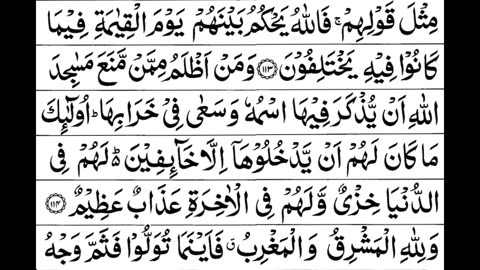 مِثْلَ قَوْلِهِمْ ۚ فَاللّٰهُ يَحْكُمُ بَيْنَهُمْ يَوْمَ الْقِيٰمَةِ فِيْمَا
كَانُوْا فِيْهِ يَخْتَلِفُوْنَ ﴿۱۱۳﴾ وَمَنْ اَظْلَمُ مِمَّنْ مَّنَعَ مَسٰجِدَ
اللّٰهِ اَنْ يُّذْكَرَ فِيْهَا اسْمُهٗ وَسَعٰى فِيْ خَرَابِهَا ؕ اُولٰٓئِكَ
مَا كَانَ لَهُمْ اَنْ يَّدْخُلُوْهَاۤ اِلَّا خَآئِفِيْنَ ؕ۬ لَهُمْ فِي
الدُّنْيَا خِزْيٌ وَّلَهُمْ فِي الْاٰخِرَةِ عَذَابٌ عَظِيْمٌ ﴿۱۱۴﴾
وَلِلّٰهِ الْمَشْرِقُ وَالْمَغْرِبُ ۗ فَاَيْنَمَا تُوَلُّوْا فَثَمَّ وَجْهُ